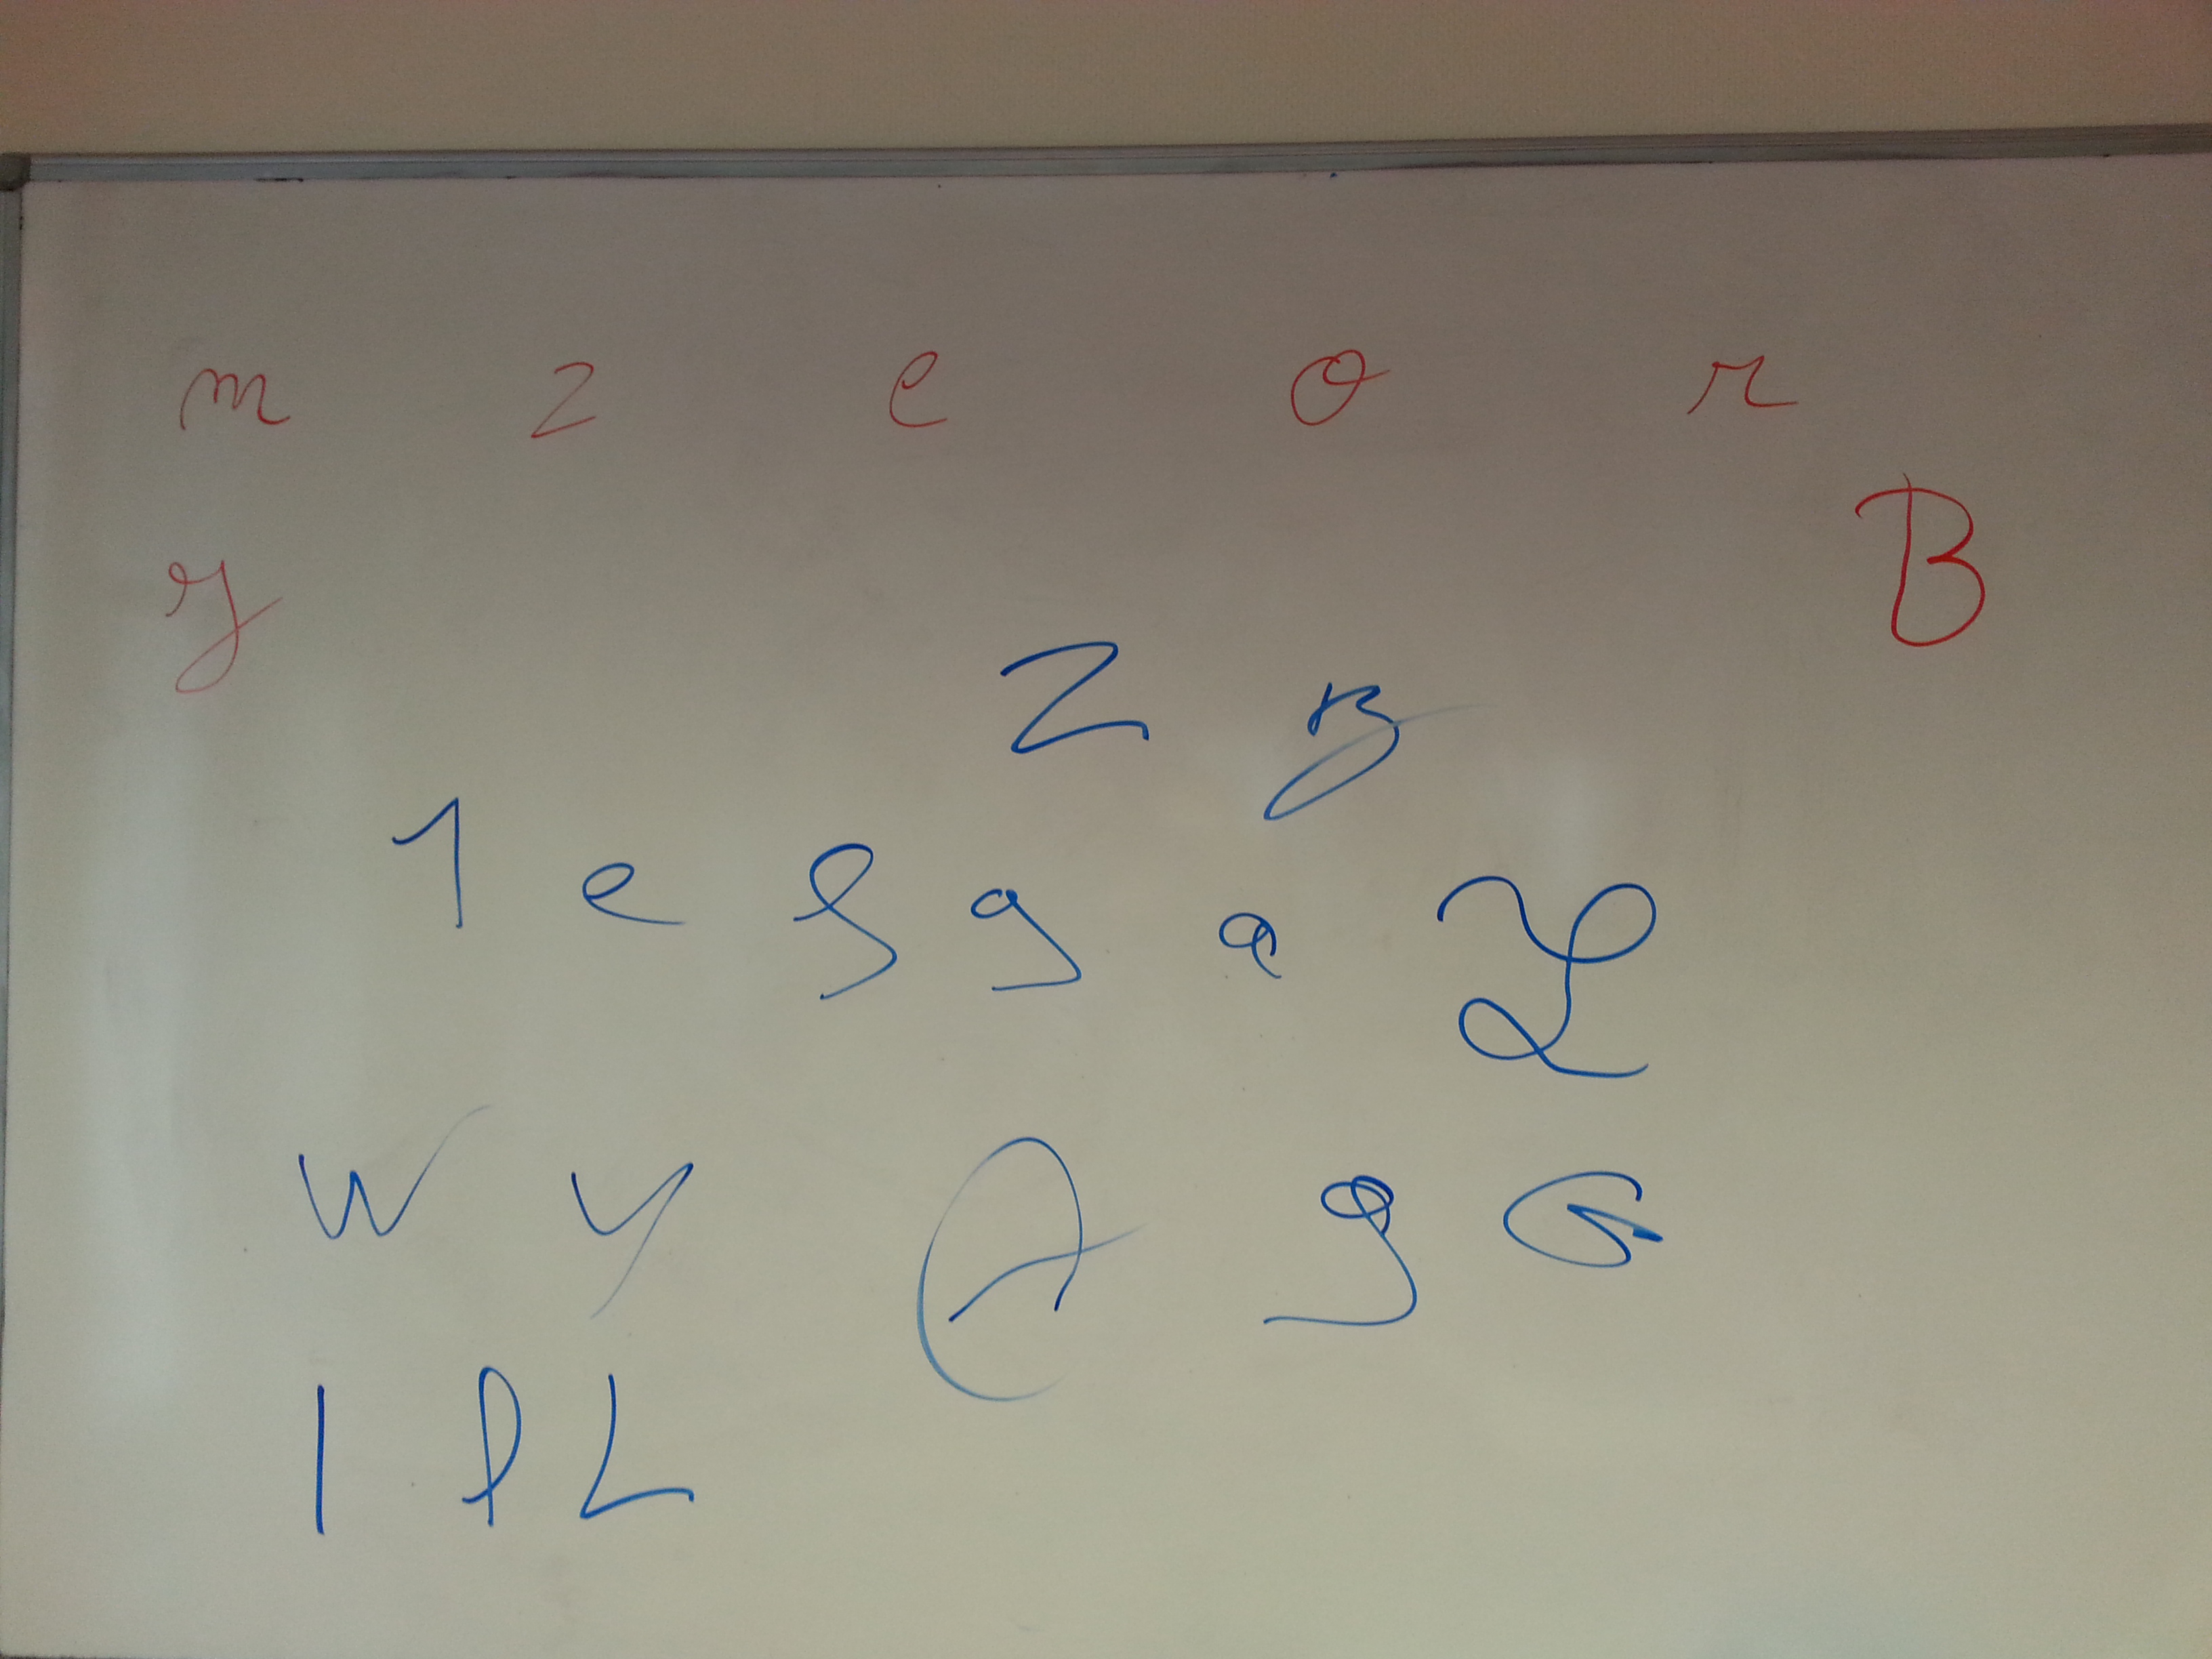 m z e o r
y B
Z z
1 e g a L
w y A g G
I P L